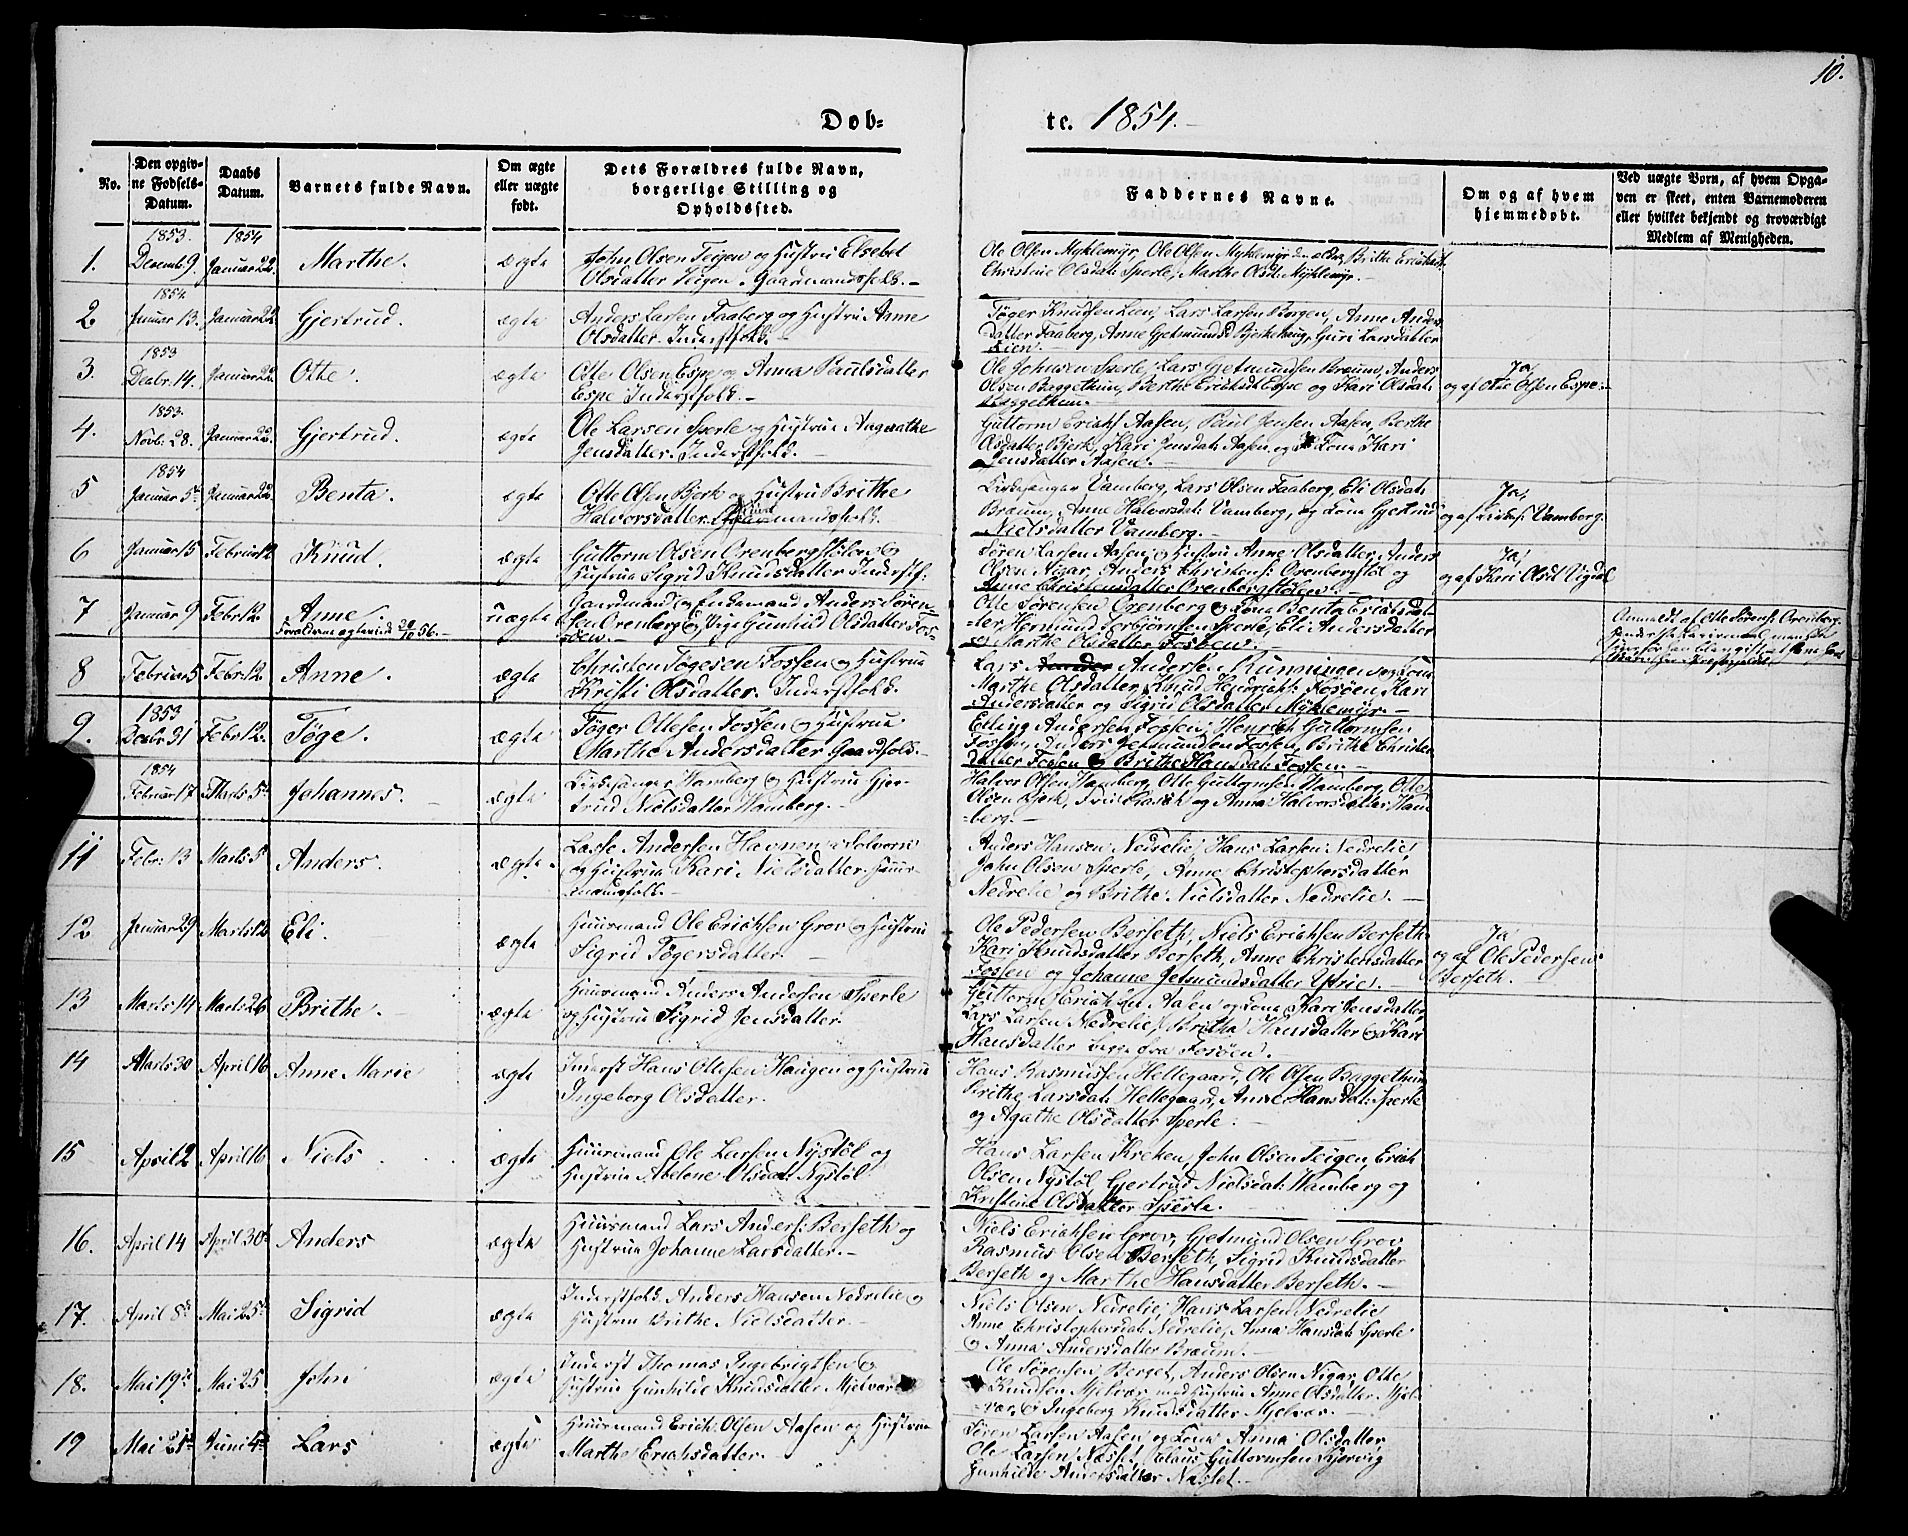 10.
Døb- te. 1854.
No.
Den opgivne Fødsels-Datum.
Daabs Datum.
Barnets fulde Navn.
Om ægte eller uægte født.
Dets Forældres fulde Navn, borgerlige Stilling og Opholdssted.
Faddernes Navne.
Om og af hvem hjemmedøbt.
Ved uægte Born, af hvem Opgaven er skeet, enten Barnemoderen eller hvilket bekjendt og troværdigt Medlem af Menigheden.
1853. 1854
1. Decemb. 9. Januar 22. Marthe. ægte
John Olsen Teigen og Hustru Elsebet
Olsdatter Teigen. Gaardmandsfolk.
Ole Olsen Myklemyr, Ole Olsen Myklemyr den Brithe Erichsd:
Christine Olsdat: Sperle, Marthe Olsd: Myklemyr.
1854
2. Januar 13. Januar 22. Gjertrud. ægte
Anders Larsen Faaberg og Hustru Anne
Olsdatter. Inderstfolk.
Tøger Knudsen Lien, Lars Larsen Borgen, Anne Anders
datter Faaberg, Anne Gjetmundsd Bjerkehaug, Guri Larsdatter
Lien.
1853
3. Decbr. 14. Januar 22. Otte. ægte
Otte Olsen Espe og Anna Paulsdatter
Espe Inderstfolk.
Ole Johnsen Sperle, Lars Gjetmundsen Bræum, Anders
Olsen Baggethun, Berthe Erichsdt Espe og Kari Olsdat:
Baggethun.
Ja,
og af Otte Olsen Espe.
1853.
4. Novb. 28. Januar 22. Gjertrud. ægte
Ole Larsen Sperle og Hustrue Angenathe
Jensdatter. Inderstfolk.
Guttorm Erichs: Aasen, Poul Jensen Aasen, Berthe
Olsdatter Bjerk, Kari Jensdat: Aasen og Kone Kari
Jensdatter Aasen.
1854
5 Januar 5te Januar 22. Benta. ægte
Otte Olsen Bjerk og Hustru Brithe
Halvorsdatter. mandsfolk.
Kirkesanger Vamberg, Lars Olsen Faaberg, Eli Olsdat:
Bræum, Anne Halvorsdat: Vamberg, og Kone Gjertrud
Nielsdatter Vamberg.
Ja,
og af Kirkes: Vamberg.
6 Januar 15 Februar 12 Knud. ægte
Guttorm Olsen Orenbergstølen og
Hustrue Sigrid Knudsdatter Inderstf:
Søren Larsen Aasen og Hustru Anne Olsdatter, Anders
Olsen Nigar, Anders Christens: Orenbergstøl og
Anne Christensdatter Orenbergstølen.
Ja,
og af Kari Olsdt Uigdal
7 Januar 9 Febr. 12. Anne uægte
Forældrene ægteviede 20/10 56.
Gaardmand og Enkemand Anders Søren-
sen Orenberg og Pige Gunhild Olsdatter Fos-
søen.
Otte Sørensen Orenberg og Kone Benta Erichsdat-
ter, Hermund Torbjørnsen Sperle, Eli Andersdatter
og Marthe Olsdatter Fosøen.
Anmeldt af Otte Sørens: Orenberg.
8 Februar 5 Febr. 12. Anne. ægte
Christen Tøgesen Fossen og Hustrue
Kristi Olsdatter. Inderstfolk.
Lars Anders: og Kone
Marthe Olsdatter, Knud Hendrichs: Fosøen, Kari
Andersdatter og Sigrid Olsdatter Myklemyr.
1853
9. Decbr. 31 Febr. 12. Tøge. ægte
Tøger Ottesen Fossen og Hustrue
Marthe Andersdatter Gaardfolk.
Elling Andersen Fossen, Henrik Guttormsen
Fossen, Anders Gjetmundsen Fossen, Brithe Christen
datter Fossen og Brithe Hansdat: Fossen.
1854
Februar 17 Marts 5te Johannes. ægte
Kirkesanger Vamberg og Hustrue Gjer-
trud Nielsdatter Vamberg.
Halvor Olsen Vamberg, Otte Guttormsen Vamberg, Otte
Olsen Bjerk, og Anna Halvorsdatter Vam-
berg.
11 Febr. 13 Marts 5 Anders. ægte
Lasse Andersen Havnen i Solvorn
og Hustrue Kari Nielsdatter. Huus-
mandsfolk.
Anders Hansen Nedrelie, Hans Larsen Nedrelie,
John Olsen Sperle, Anne Christophersdatter
Nedrelie og Brithe Nielsdatter Nedrelie.
12 Januar 29 Marts 12 Eli. ægte
Huusmand Ole Erichsen Grov og Hustrue
Sigrid Tøgersdatter.
Ole Pedersen Berseth, Niels Erichsen Berseth
Kari Knudsdatter Berseth, Anne Christensdatter
Fossen og Johanne Jetmundsdatter Ystrie.
Ja
og af Ole Pedersen
Berseth.
13 Marts 14 Marts 26 Brithe. ægte
Huusmand Anders Andersen Sperle
og Hustrue Sigrid Jensdatter.
Guttorm Erichsen Aasen og Kone Kari Jensdatter,
Lars Larsen Nedrelie, Brithe Hansdatter og Kari
Hansdatter begge fra Fosøen.
14 Marts 30 April 16 Anne Marie ægte
Inderst Hans Ottesen Haugen og Hustrue
Ingeborg Olsdatter.
Hans Rasmussen Hellegaard, Ole Olsen Baggethun
Brithe Larsdat: Hellegaard, Anne Hansdat: Sperle
og Agathe Olsdatter Sperle.
15 April 2 April 16 Niels ægte
Huusmand Ole Larsen Nystøl og
Hustrue Abelone Olsdat: Nystøl
Hans Larsen Kreken, John Olsen Teigen, Erich
Olsen Nystøl Gjertrud Nielsdat: Vamberg og
Kristine Olsdatter Sperle.
16. April 14 April 30te Anders ægte
Huusmand Lars Anders: Berseth og
Hustrue Johanne Larsdatter.
Niels Erichsen Grov, Gjetmund Olsen Grov
Rasmus Olsen Berseth, Sigrid Knudsdatter
Berseth og Marthe Hansdatter Berseth.
17. April 8de Mai 25de Sigrid ægte
Inderstfolk. Anders Hansen Nedrelie og
Hustrue Brithe Nielsdatter.
Niels Olsen Nedrelie, Hans Larsen Nedrelie
Anne Christophersdat: Nedrelie, Anna Hansdat: Sperle
og Anna Andersdatter Bræum.
18. Mai 19de Mai 25 John ægte
Inderst Thomas Ingebrigtsen og
Hustrue Gunhilde Knudsdatter Mjelvær
Ole Sørensen Berget, Anders Olsen Nigar, Otte
Knudsen Mjelvær med Hustrue Anne Olsdatter Mjel-
vær, og Ingeborg Knudsdatter Mjelvær.
19 Mai 21de Juni 4de Lars ægte
Huusmand Erich Olsen Aasen og Hustrue
Marthe Erichsdatter.
Søren Larsen Aasen og Kone Anna Olsdatter
Ole Larsen Næss, Claus Guttormsen Kjervig
Gunhilde Andersdatter Næstet.